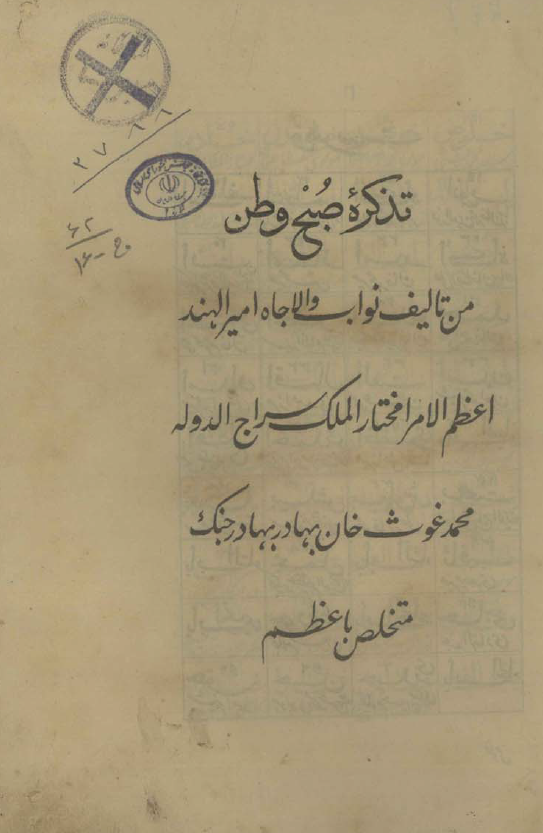 ۲۷۸۸
تذکرهٔ صُبْح وطن
۶۲
ج-۱۶
من تالیف نواب والاجاه امیر الهند
اعظم الامرا مختار الملک سراج الدوله
محمد غوث خان بهادر بهادر جنک
متخلص باعظم